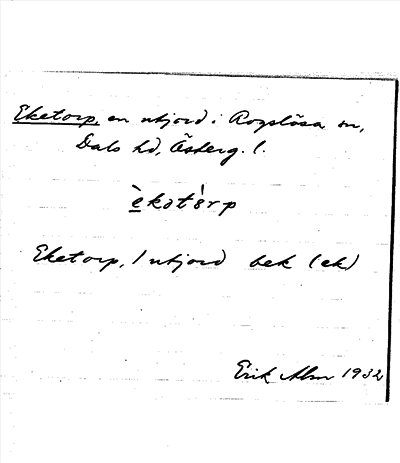 Eketorp, en utjord i Rogslösa sn,
Dals hd, Österg. l.
èkat8rp
Eketorp, 1 utjord bek (ek)
Erik Alm 1932